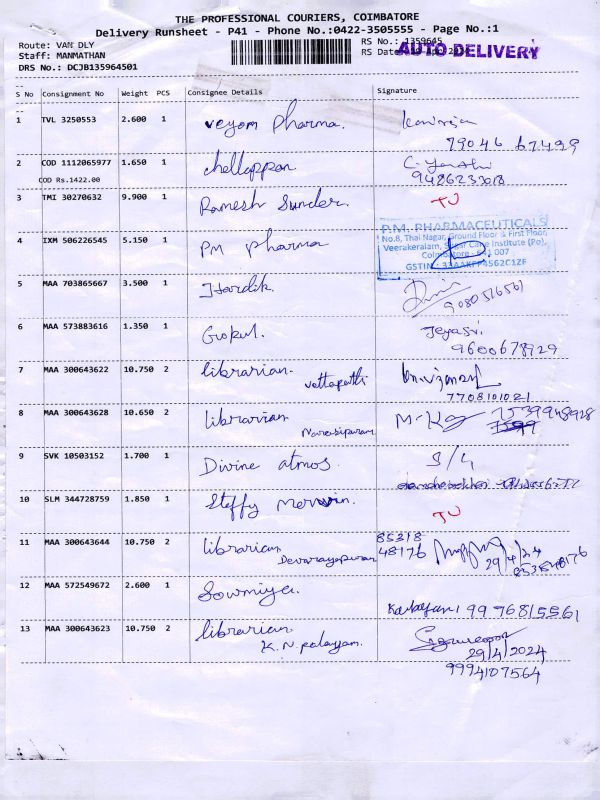 THE PROFESSIONAL COURIERS, COIMBATORE
Delivery Runsheet - P41 - Phone No.:0422-3505555 - Page No.:1
Route: VAN DLY
Staff: MANMATHAN
DRS No.: DCJB135964501
RS No.: 1359645
RS Date
AUTO DELIVERY
S No Consignment No Weight PCS Consignee Details Signature
1 TVL 3250553 2.600 1 Veyom Pharma.
79046 67499
2 COD 1112065977 1.650 1 chellappan
COD Rs.1422.00
9486233018
3 TMI 30270632 9.900 1 Ramesh Sunder. TU
4 IXM 506226545 5.150 1 PM Pharma
P.M. PHARMACEUTICALS
No.8, Thai Nagar, Ground Floor & First Floor
Veerakeralam, Sugar Cane Institute (Po),
Coimbatore - 641 007
GSTIN : 33AAKFP4562C1ZF
5 MAA 703865667 3.500 1 Hardik
9080516561
6 MAA 573883616 1.350 1 Gokul. Jeyasri
9600678929
7 MAA 300643622 10.750 2 librarian.
7708101021
8 MAA 300643628 10.650 2 librarian 7539948928
Narasipuram
9 SVK 10503152 1.700 1 Divine atmos. S/4
10 SLM 344728759 1.850 1 Steffy TU
11 MAA 300643644 10.750 2 librarian 85318
Devarayapuram 48176 29/4/24
12 MAA 572549672 2.600 1 Sowmiya.
Kalayani 9976815561
13 MAA 300643623 10.750 2 librarian
K.N. palayam. 29/4/2024
9994107564